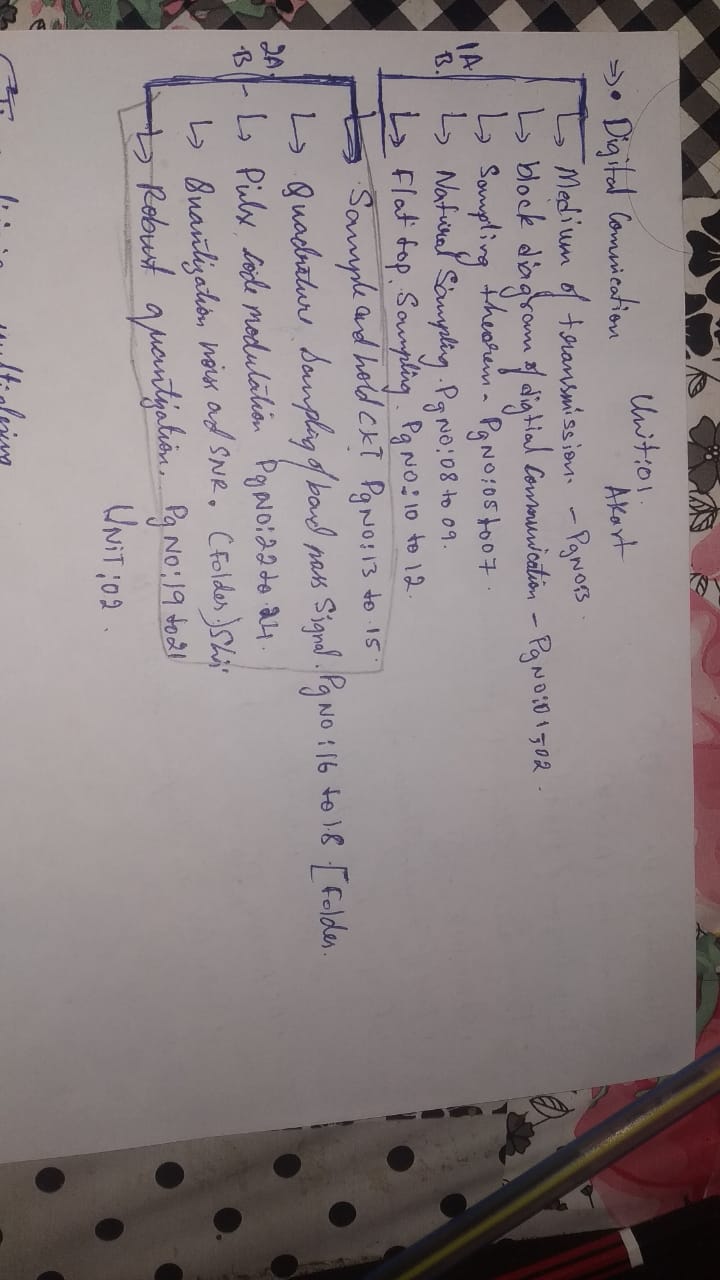 Unit:01.
Akart
⇒ • Digital Commication
1A
B.
↳ Medium of transmission. - PgNo:3.
↳ block diagram of digtial Communication - PgNo:01,02.
↳ Sampling theorem - PgNO:05to07.
↳ Natural Sampling. PgNO:08 to 09.
↳ Flat top. Sampling. PgNO:10 to 12.
2A.
B
↳ Sample and hold CKT PgNO:13 to 15.
↳ Quadrature. Sampling of band pass Signal. PgNO:16 to 18. [folder.
↳ Pulse code modulation PgNO:22 to 24.
↳ Quantization noise and SNR. (folder.)
↳ Robust quantization. PgNo:19 to21
UNiT:02.